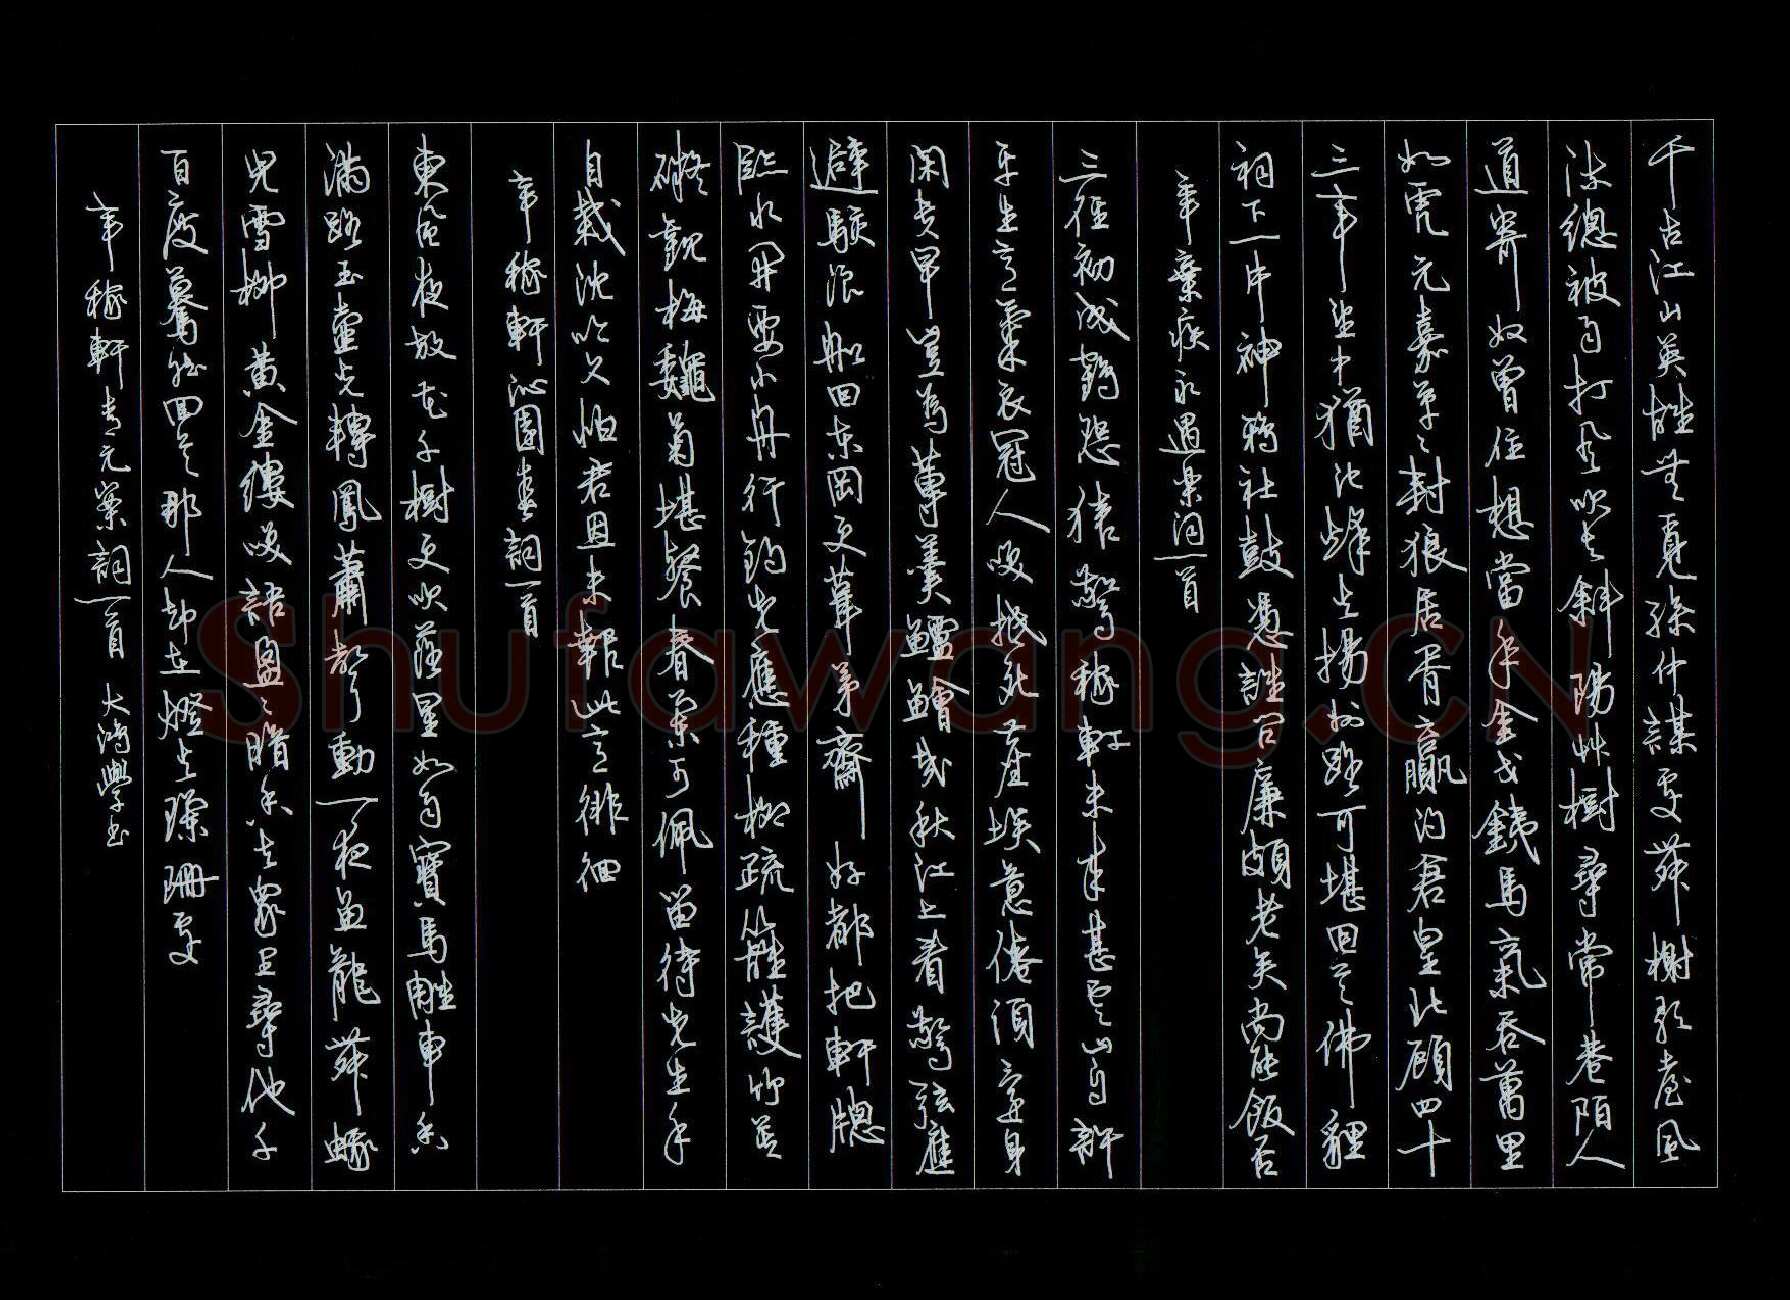 千古江山英雄無覓孫仲謀處舞榭歌臺風
流總被雨打風吹去斜陽艸樹尋常巷陌人
道寄奴曾住想當年金戈鐵馬氣吞萬里
如虎元嘉草〻封狼居胥贏得倉皇北顧四十
三年望中猶記烽火揚州路可堪回首佛貍
祠下一片神鴉社鼓憑誰問廉頗老矣尚能飯否
辛棄疾永遇樂詞一首
三徑初成鶴怨猿驚稼軒未來甚雲山自許
平生意氣衣冠人笑抵死塵埃意倦須還身
閑貴早豈為蓴羹鱸鱠哉秋江上看驚弦雁
避駭浪船回東岡更葺茅齋好都把軒牕
臨水開要小舟行釣先應種柳疏籬護竹莫
礙觀梅秋菊堪餐春蘭可佩留待先生手
自栽沈吟久怕君恩未許此意徘徊
辛稼軒沁園春詞一首
東風夜放花千樹更吹落星如雨寶馬雕車香
滿路玉壺光轉鳳蕭聲動一夜魚龍舞蛾
兒雪柳黃金縷笑語盈〻暗香去眾里尋他千
百度驀然回首那人却在燈火璨珊處
辛稼軒青元案詞一首 大鴻學書
Shufawang.CN